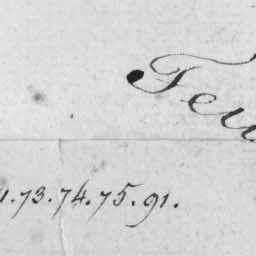 Feu
73.74.75.91.